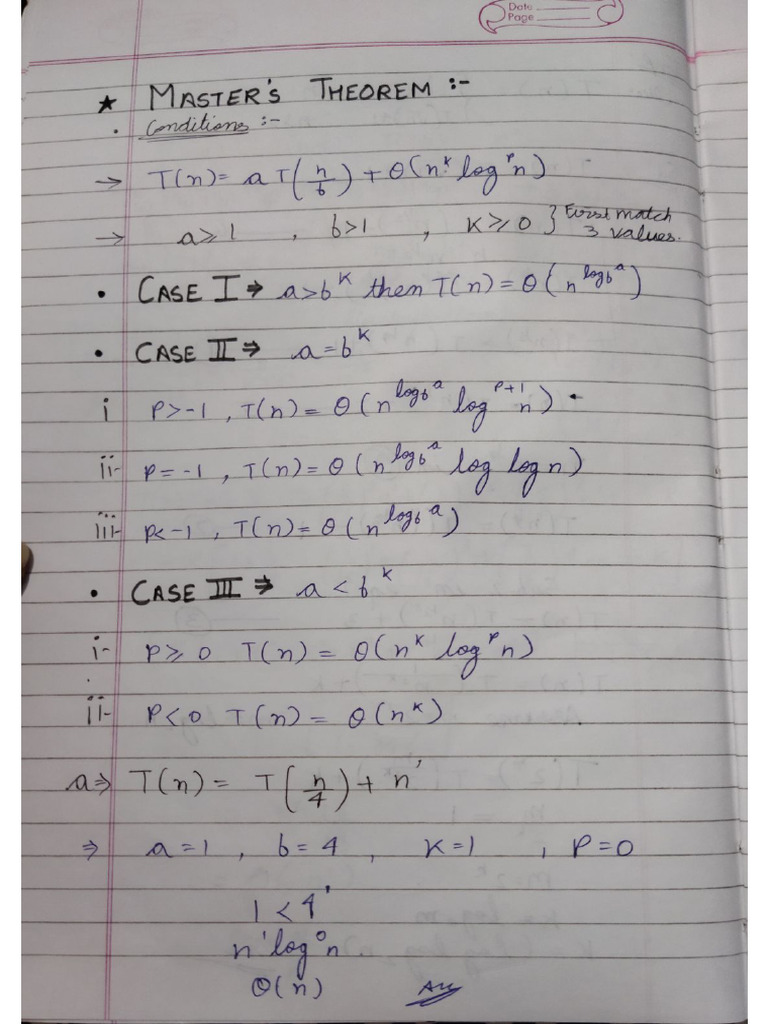 Date
Page
★ MASTER'S THEOREM :-
· Conditions :-
→ T(n) = a T(n/b) + θ(n^k log^p n)
→ a ≥ 1 , b > 1 , K ≥ 0 } First match 3 values.
• CASE I ⇒ a > b^k then T(n) = θ(n^log_b a)
• CASE II ⇒ a = b^k
i P > -1 , T(n) = θ(n^log_b a log^p+1 n)
ii- P = -1 , T(n) = θ(n^log_b a log log n)
iii- P < -1 , T(n) = θ(n^log_b a)
• CASE III ⇒ a < b^k
i- P ≥ 0 T(n) = θ(n^k log^p n)
ii- P < 0 T(n) = θ(n^k)
a ⇒ T(n) = T(n/4) + n^1
⇒ a = 1 , b = 4 , K = 1 , P = 0
1 < 4^1
n^1 log^0 n
θ(n)